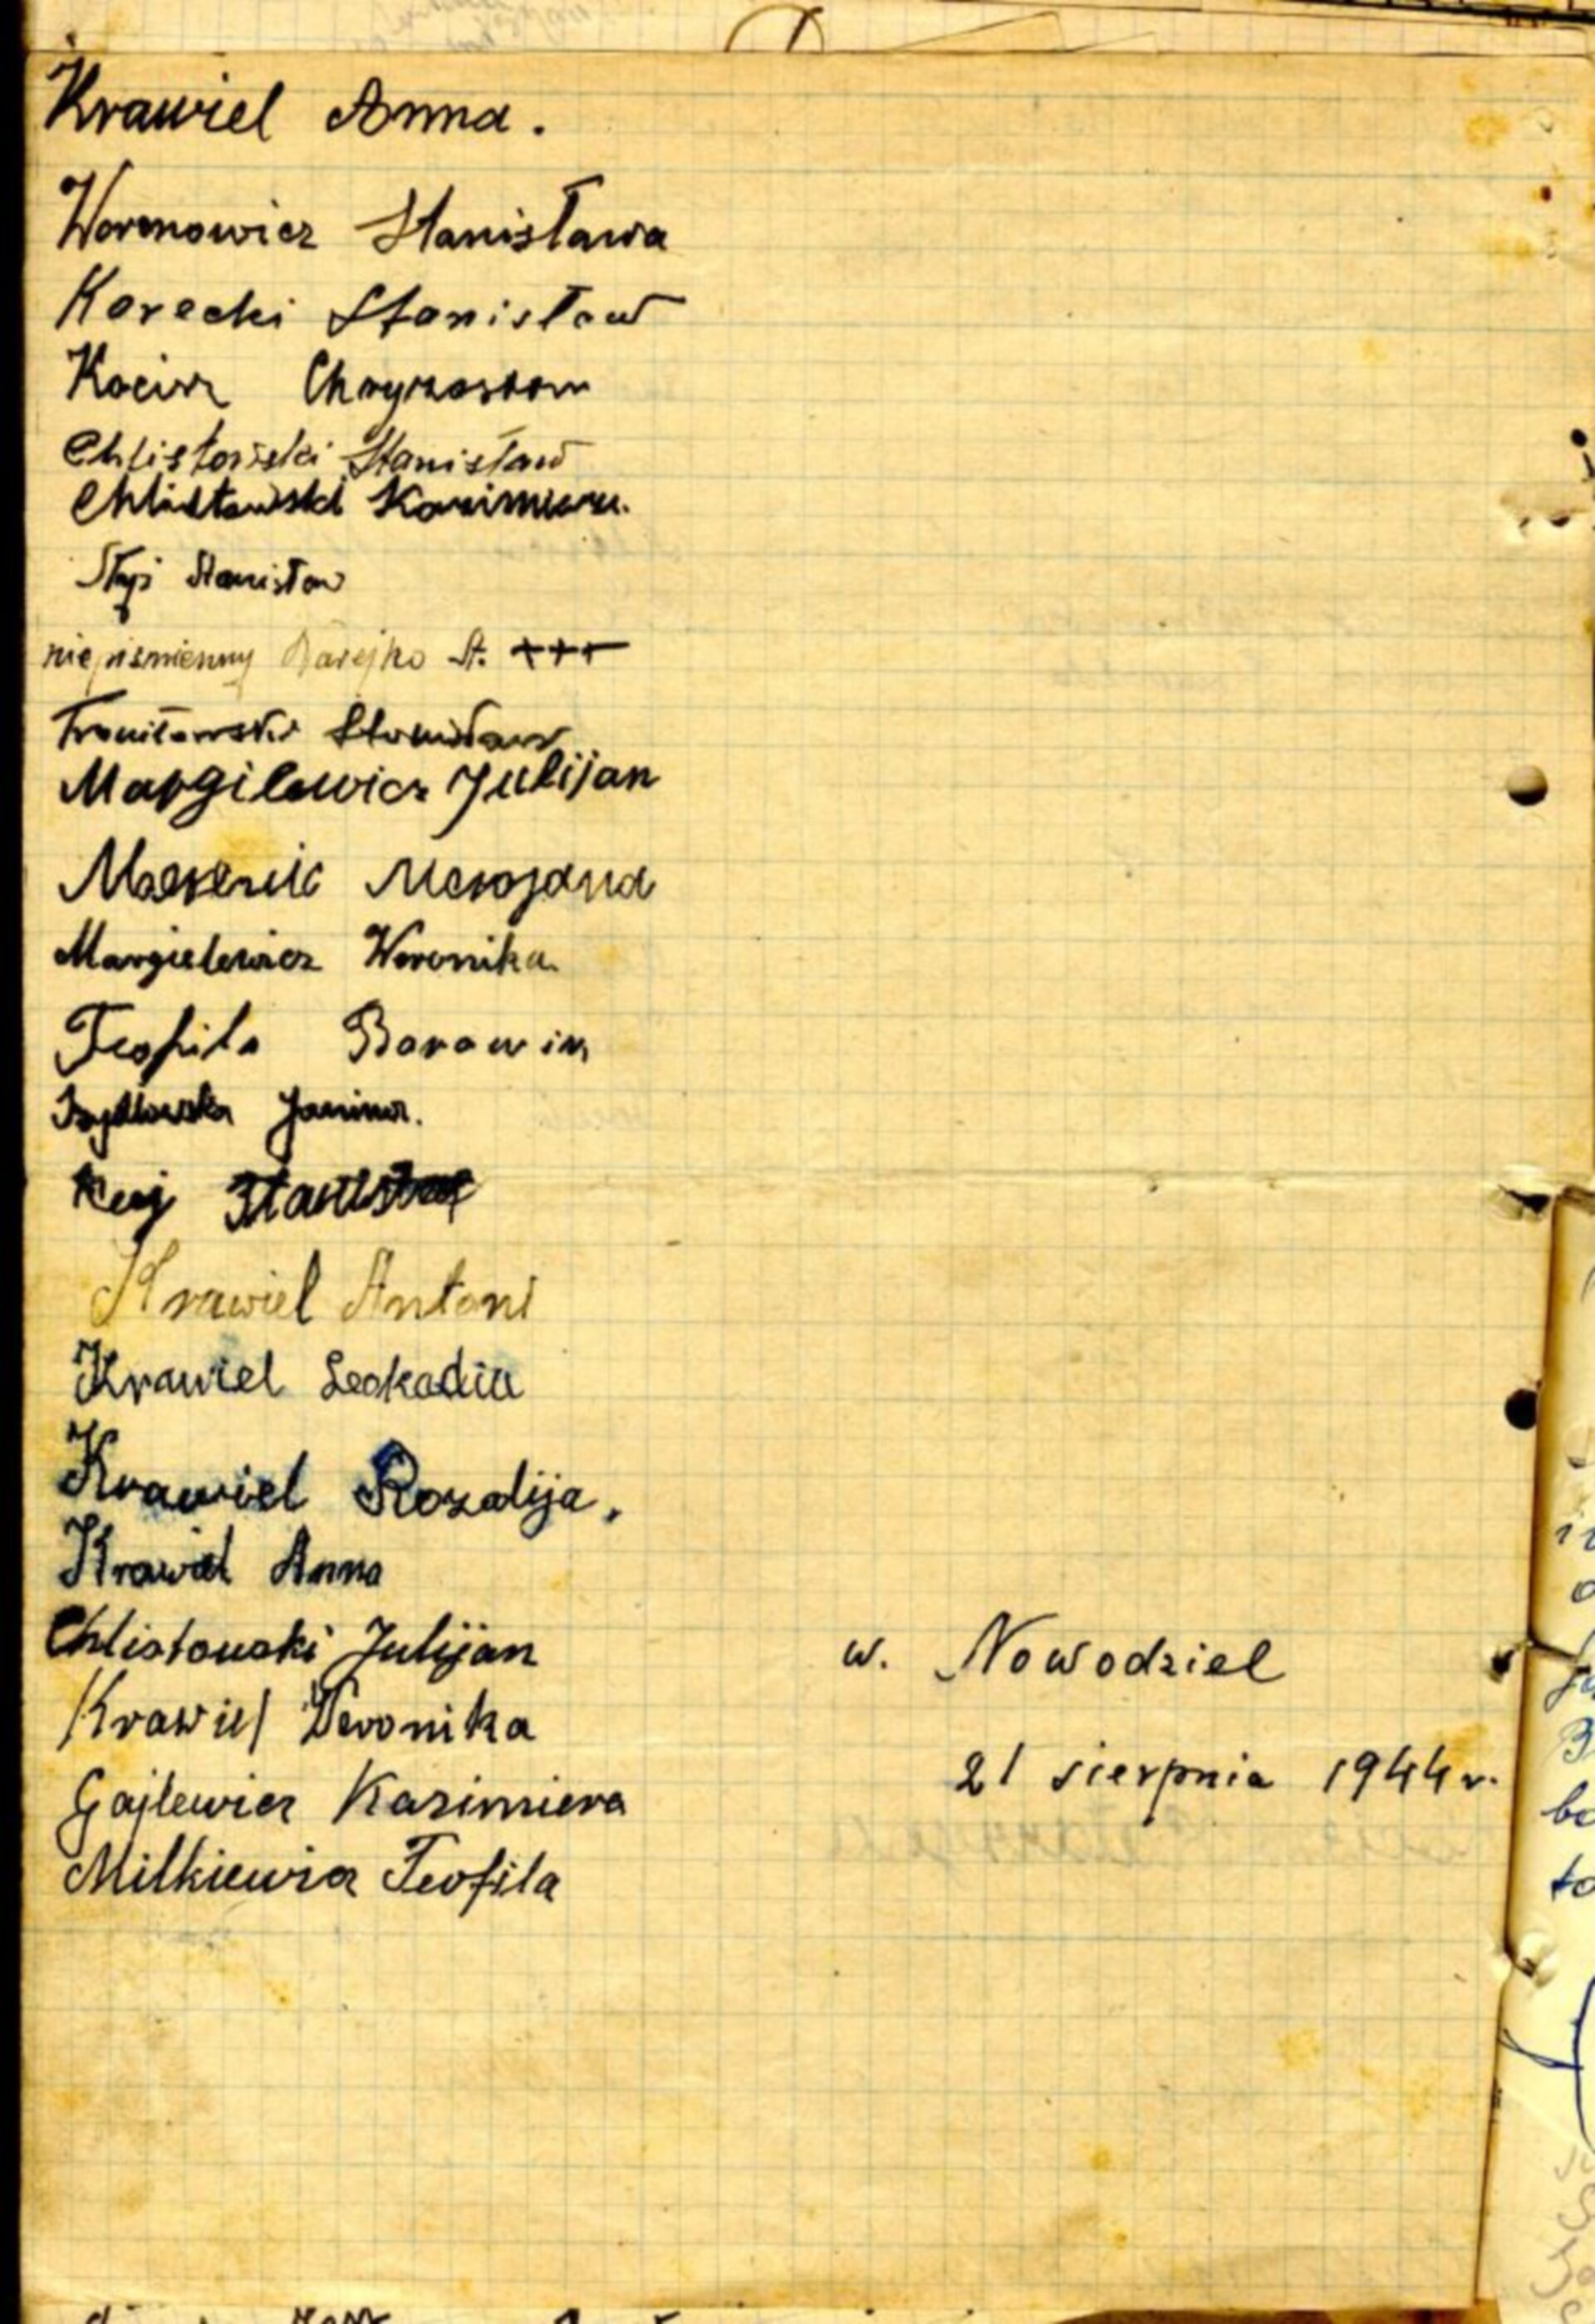 Krawiel Anna.
Woronowicz Stanisława
Korecki Stanisław
Chryzostom
Chlistowski Stanisław
Chlistowski Kazimierz.
Stanisław
niepiśmienny St. +++
Stanisław
Margilewicz Julijan
Margielewicz Weronika
Teofila Borowik
Janina.
Kuj Stanisław
Krawiel Antoni
Krawiel Leokadia
Krawiel Rozalija.
Krawiel Anna
Chlistouski Julijan
w. Nowodziel
Krawiel Weronika
21 sierpnia 1944 r.
Gajlewicz Kazimiera
Milkiewicz Teofila